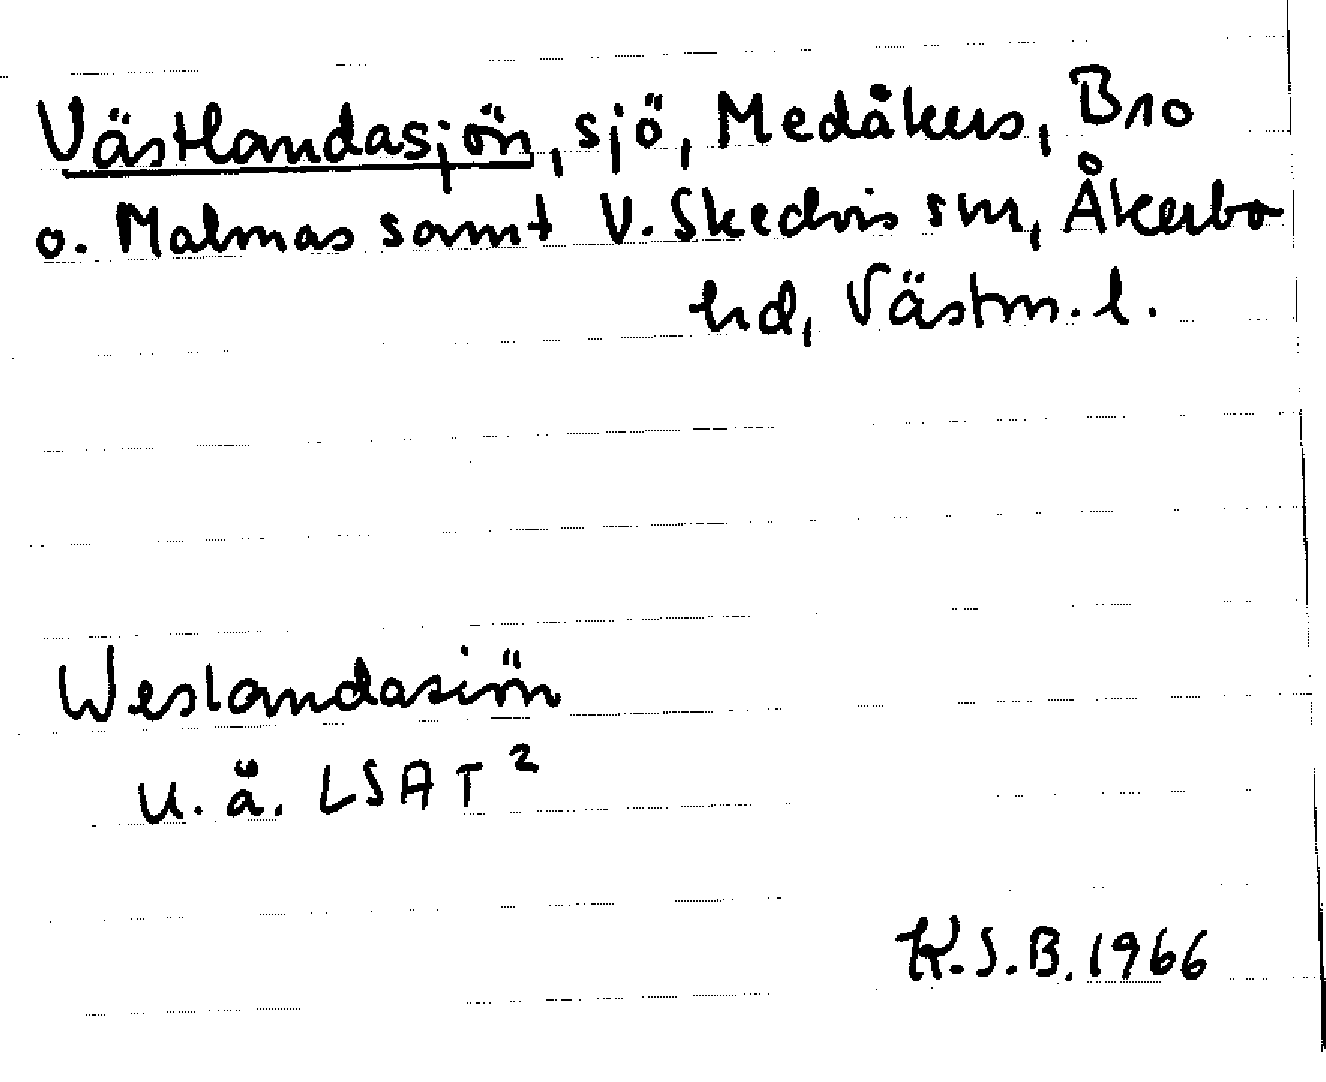 Västlandasjön, sjö, Medåkers, Bro
o. Malmas samt V. Skedvis snr, Åkerbo
hd, Västm. l.
Weslandasiön
u. å. LSA T²
K.S.B. 1966